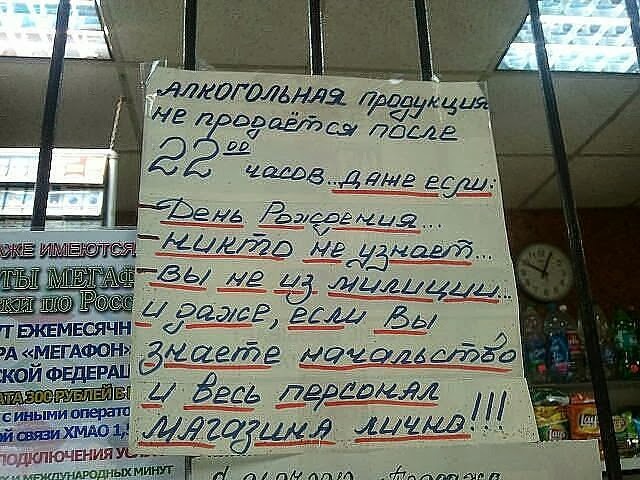 АЛКОГОЛЬНАЯ ПРОДУКЦИЯ
НЕ ПРОДАЁТСЯ ПОСЛЕ
22⁰⁰ ЧАСОВ.. ДАЖЕ ЕСЛИ:
- ДЕНЬ РОЖДЕНИЯ...
- НИКТО НЕ УЗНАЕТ...
- ВЫ НЕ ИЗ МИЛИЦИИ...
И ДАЖЕ, ЕСЛИ ВЫ
ЗНАЕТЕ НАЧАЛЬСТВО
И ВЕСЬ ПЕРСОНАЛ
МАГАЗИНА ЛИЧНО!!!
ИМЕЮТСЯ
МЕГАФ
ки по Росс
ЕЖЕМЕСЯЧН
«МЕГАФОН»
СКОЙ ФЕДЕРАЦ
300 РУБЛЕЙ В
с иными операто
ой связи ХМАО 1,
ПОДКЛЮЧЕНИЯ УСЛ
И МЕЖДУНАРОДНЫХ МИНУТ
Lay's